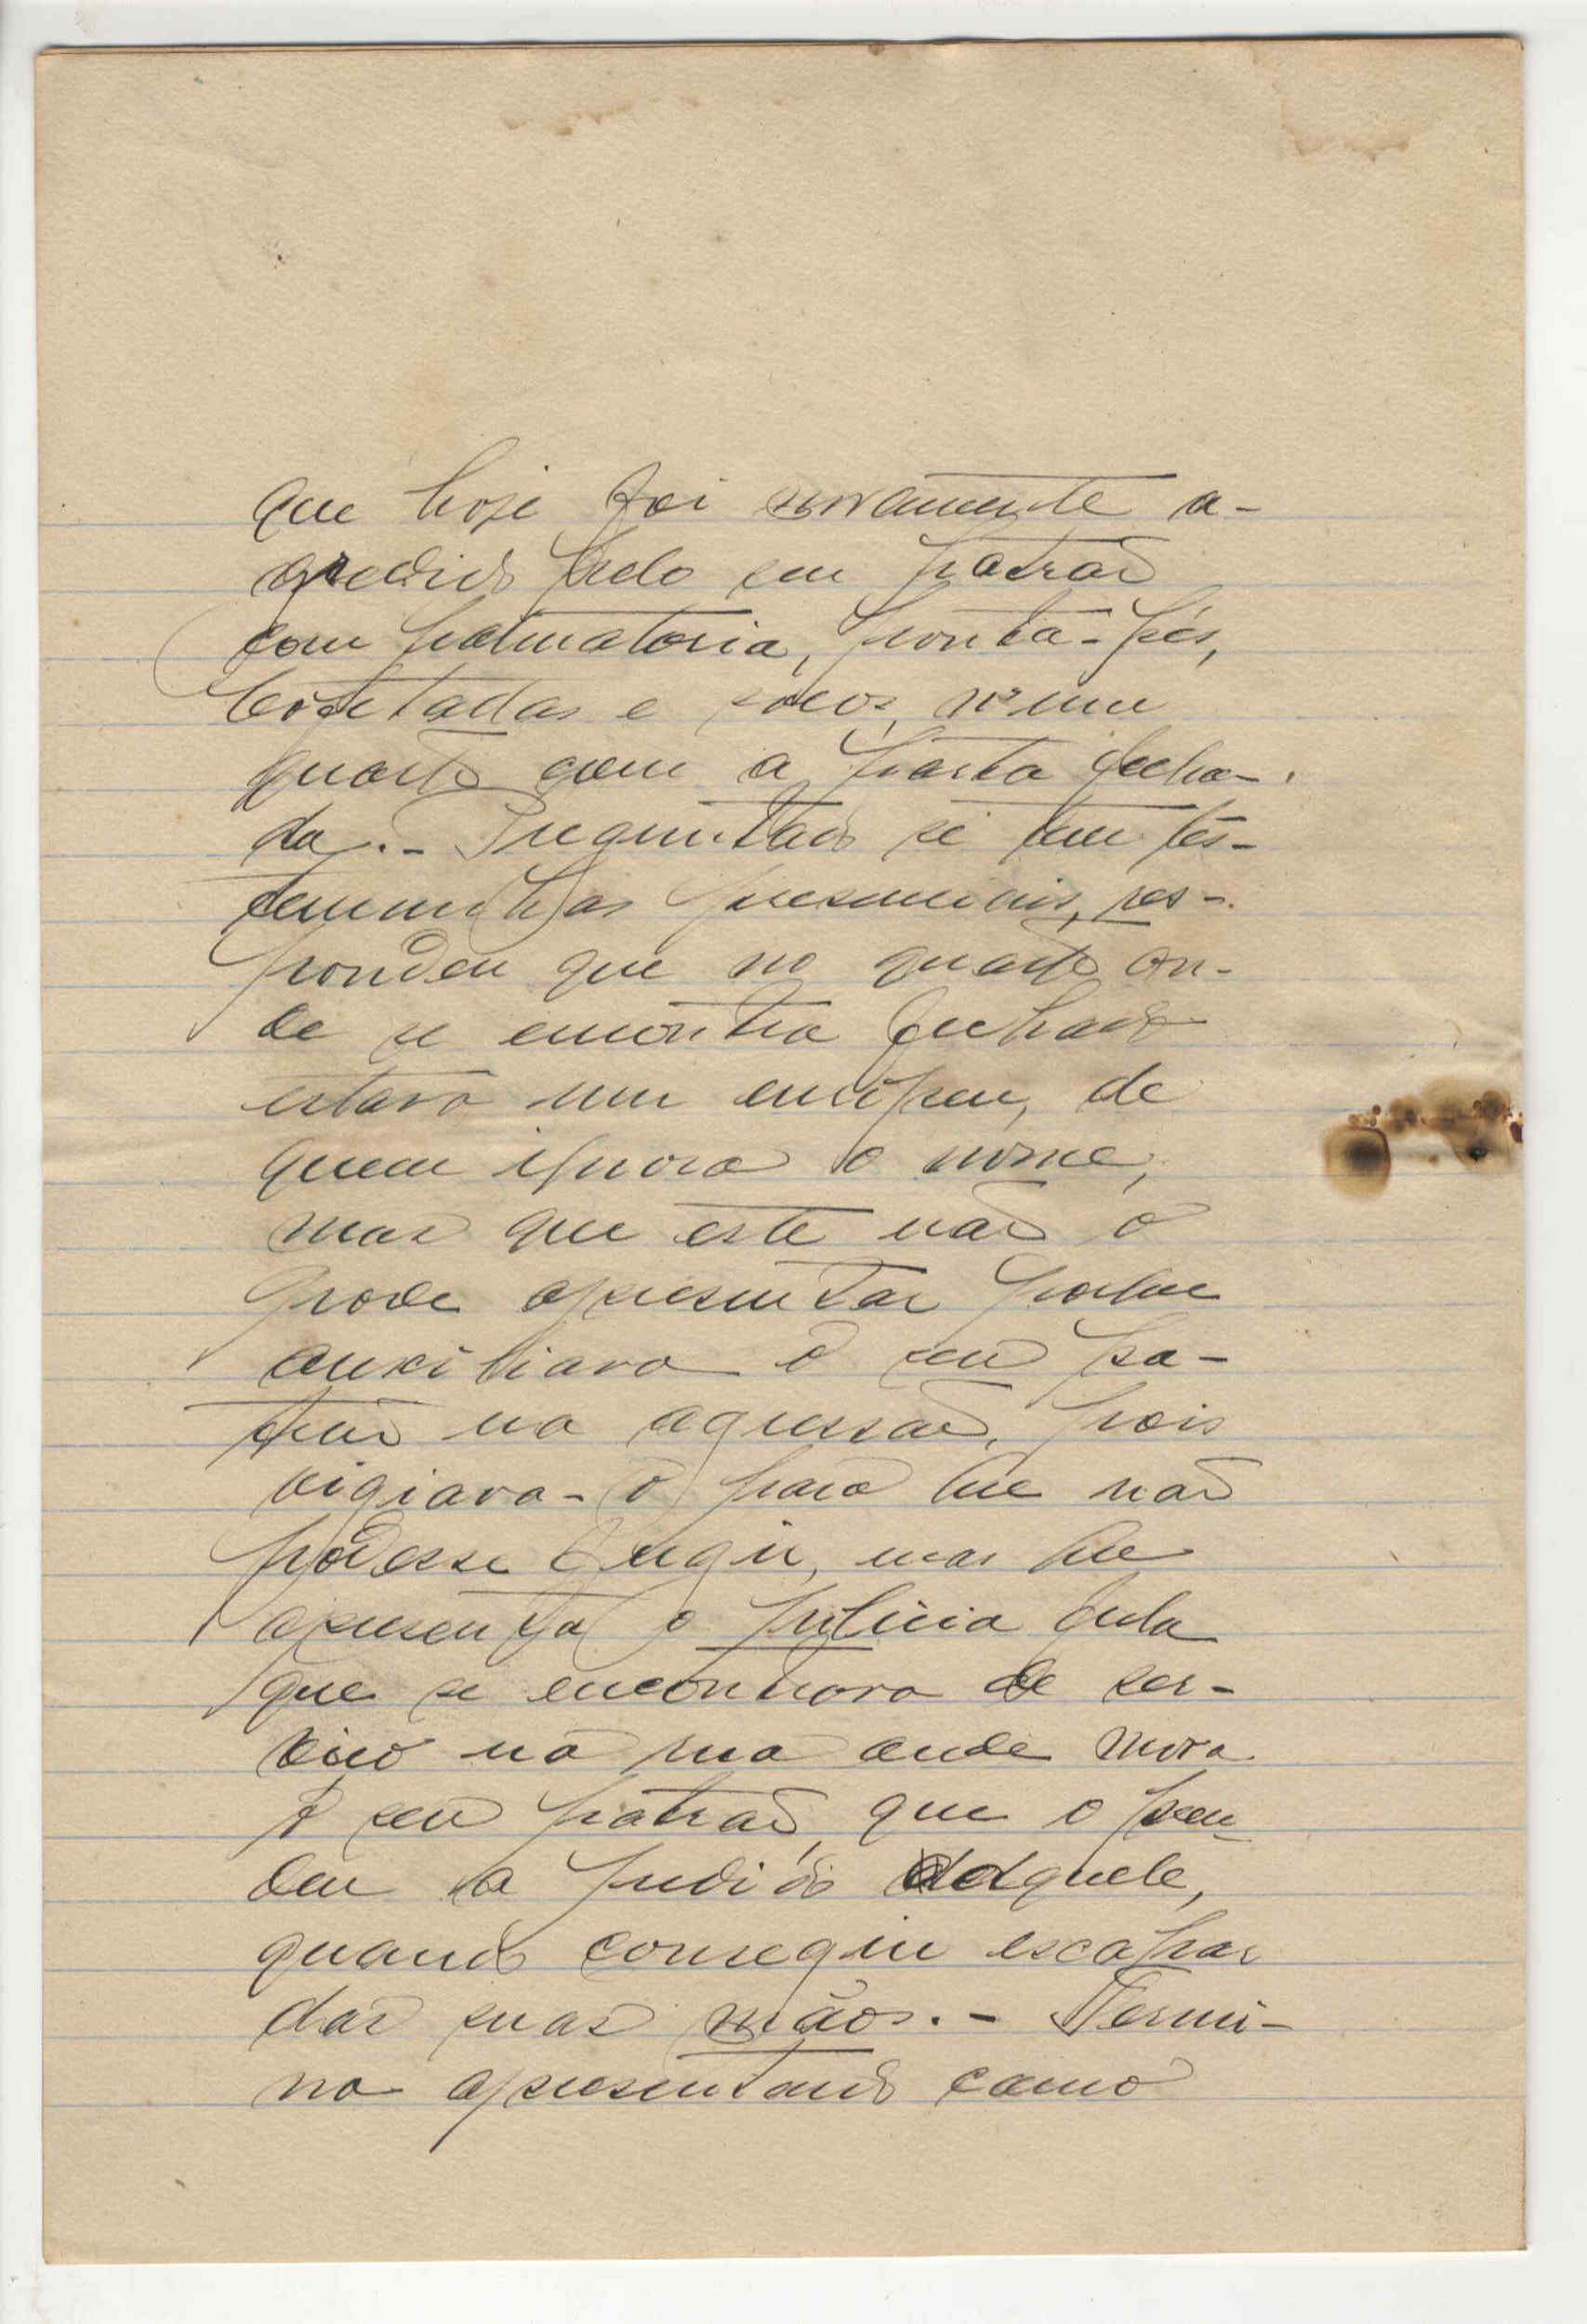 que hoje foi novamente a-
gredido pelo seu patrão
com palmatoria, ponta-pés,
bofetadas e sôcos, n'um
quarto com a porta fecha-
da.- Preguntado se tem tes-
temunhas presenciais, res-
pondeu que no quarto on-
de se encontra fechado
estava um europeu, de
quem ignora o nome,
mas que este não o
pode apresentar porque
auxiliava o seu pa-
trão na agressão, pois
vigiava-o para que não
podesse fugir, mas que
apresenta o policia
que se encontrava de ser-
viço na rua onde mora
o seu patrão, que o pren-
deu a pedido daquele,
quando conseguiu escapar
das suas mãos.- Termi-
na apresentando como